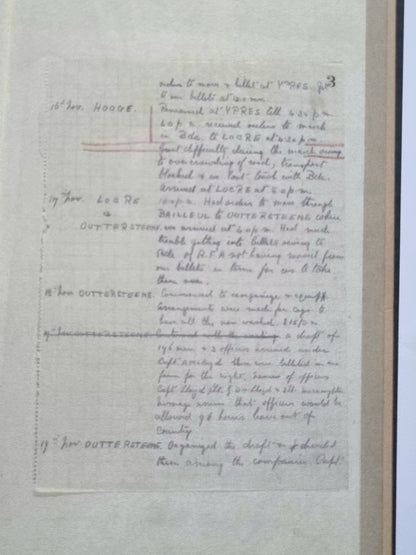 3
orders to move & billet at YPRES. Got
to our billets at
16th Nov. HOOGE. Remained at YPRES till 4.30 p.m.
4.0 p.m. received orders to march
in Bde. to LOCRE at 4.30 p.m.
Great difficulty during the march owing
to overcrowding of road, transport
blocked & we lost touch with Bde.
Arrived at LOCRE at 8.0 p.m.
17th Nov. LOCRE Had orders to move through
& BAILLEUL to OUTTERSTEENE where
OUTTERSTEENE. we arrived at 4.0 p.m. Had much
trouble getting into billets owing to
of R.F.A not having moved from
our billets in time for us to take
them over.
18th Nov OUTTERSTEENE. Commenced to reorganize &
Arrangements were made for
have all the men washed.
OUTTERSTEENE a draft of
196 men & 3 officers arrived under
Capt. Lloyd these were billeted in one
farm for the night, names of officers
Capt Lloyd &
message that officers would be
allowed 96 hours leave out of
Country.
19th Nov. OUTTERSTEENE. Organized the draft & divided
them among the companies. Capt.